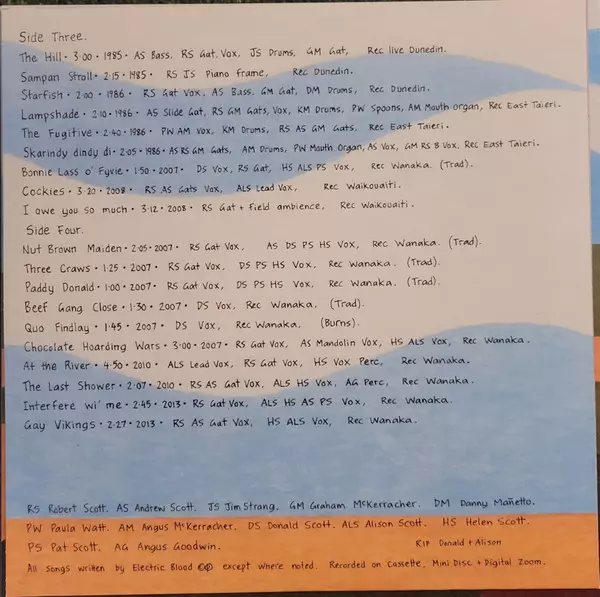 Side Three.
The Hill · 3:00 · 1985 · AS Bass. RS Gat. Vox, JS Drums, GM Gat, Rec live Dunedin.
Sampan Stroll · 2:15 · 1985 · RS JS Piano frame, Rec Dunedin.
Starfish · 2:00 · 1986 · RS Gat Vox, AS Bass, GM Gat, DM Drums, Rec Dunedin.
Lampshade · 2:10 · 1986 · AS Slide Gat, RS GM Gats, Vox, KM Drums, PW Spoons, AM Mouth organ, Rec East Taieri.
The Fugitive · 2:40 · 1986 · PW AM Vox, KM Drums, RS AS GM Gats, Rec East Taieri.
Skarindy dindy di · 2:05 · 1986 · AS RS GM Gats, AM Drums, PW Mouth Organ, AS Vox, GM RS B Vox, Rec East Taieri.
Bonnie Lass o' Fyvie · 1:50 · 2007 · DS Vox, RS Gat, HS ALS PS Vox, Rec Wanaka. (Trad).
Cockies · 3:20 · 2008 · RS AS Gats Vox, ALS Lead Vox, Rec Waikouaiti.
I owe you so much · 3:12 · 2008 · RS Gat + field ambience, Rec Waikouaiti.
Side Four.
Nut Brown Maiden · 2:05 · 2007 · RS Gat Vox, AS DS PS HS Vox, Rec Wanaka. (Trad).
Three Craws · 1:25 · 2007 · RS Gat Vox, DS PS HS Vox, Rec Wanaka. (Trad).
Paddy Donald · 1:00 · 2007 · RS Gat Vox, DS PS HS Vox, Rec Wanaka. (Trad).
Beef Gang Close · 1:30 · 2007 · DS Vox, Rec Wanaka, (Trad).
Quo Findlay · 1:45 · 2007 · DS Vox, Rec Wanaka, (Burns).
Chocolate Hoarding Wars · 3:00 · 2007 · RS Gat Vox, AS Mandolin Vox, HS ALS Vox, Rec Wanaka.
At the River · 4:50 · 2010 · ALS Lead Vox, RS Gat Vox, HS Vox Perc, Rec Wanaka.
The Last Shower · 2:07 · 2010 · RS AS Gat Vox, ALS HS Vox, AG Perc, Rec Wanaka.
Interfere wi' me · 2:45 · 2013 · RS Gat Vox, ALS HS AS PS Vox, Rec Wanaka.
Gay Vikings · 2:27 · 2013 · RS AS Gat Vox, HS ALS Vox, Rec Wanaka.
RS Robert Scott. AS Andrew Scott. JS Jim Strang. GM Graham McKerracher. DM Danny Mañetto.
PW Paula Watt. AM Angus McKerracher. DS Donald Scott. ALS Alison Scott. HS Helen Scott.
PS Pat Scott. AG Angus Goodwin. RIP Donald + Alison
All songs written by Electric Blood ©℗ except where noted. Recorded on Cassette, Mini Disc + Digital Zoom.